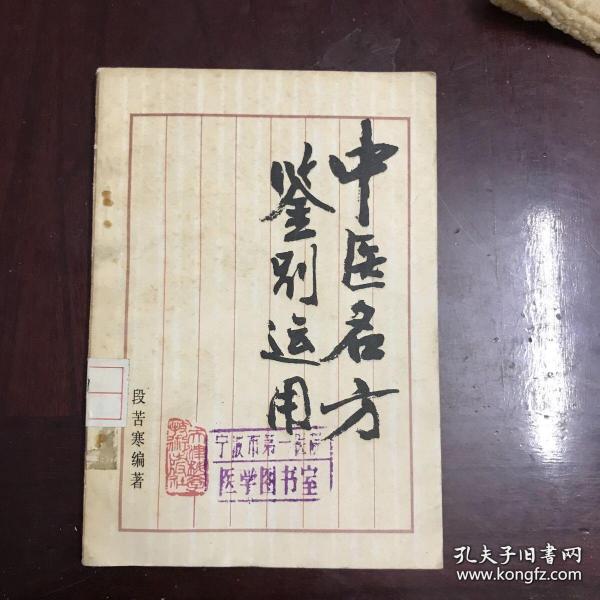 中医名方
鉴别运用
段苦寒编著
宁波市第一医院
医学图书室
孔夫子旧书网
www.kongfz.com